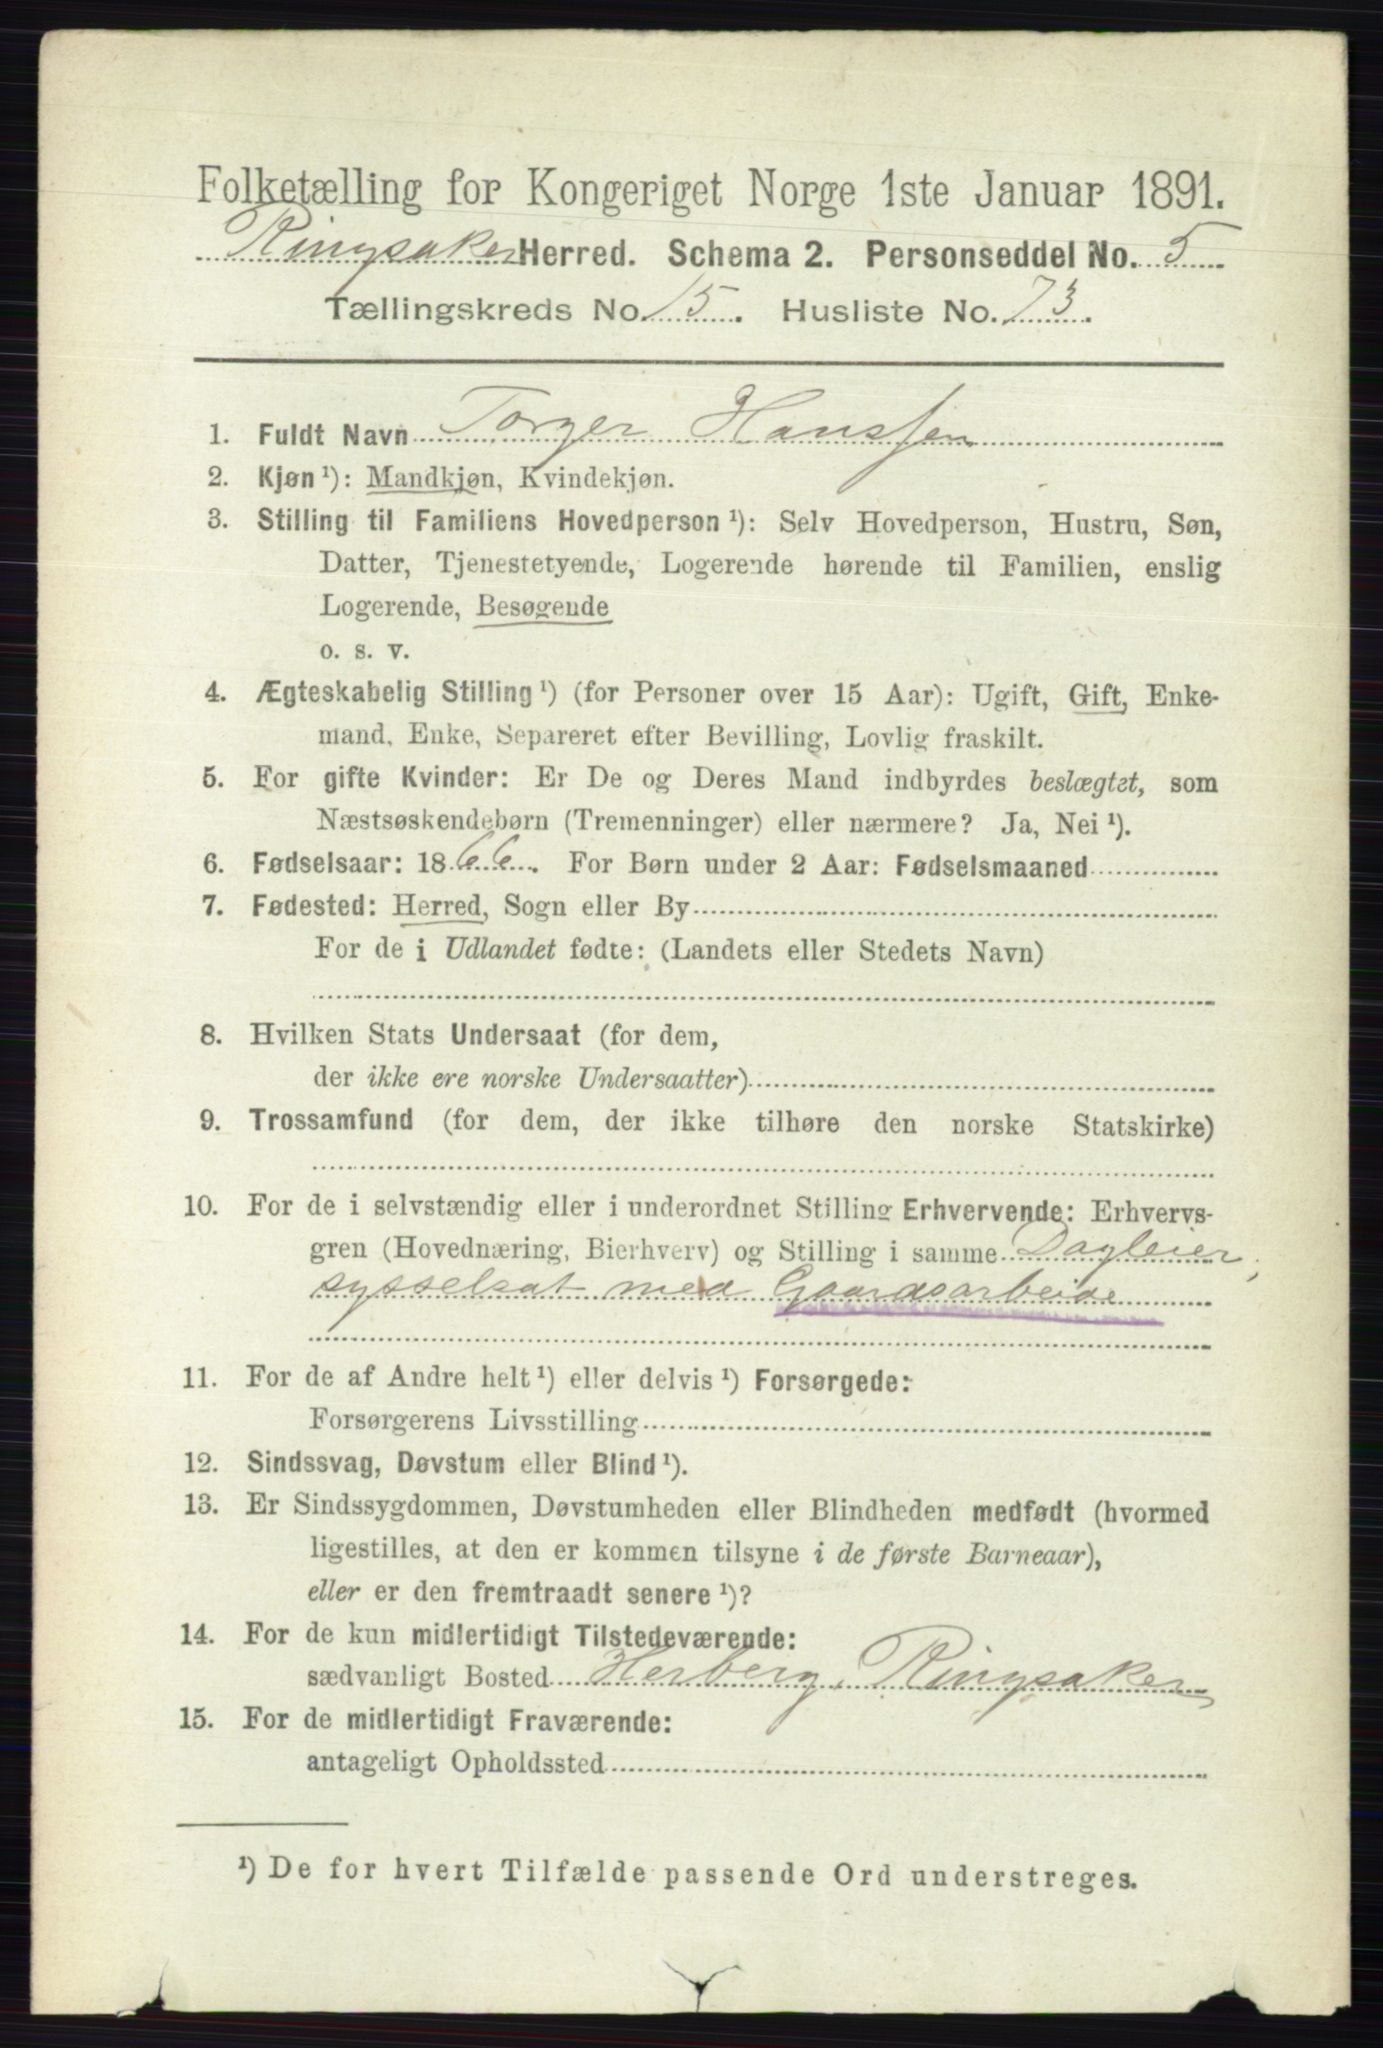 Folketælling for Kongeriget Norge 1ste Januar 1891.
Ringsaker Herred. Schema 2. Personseddel No. 5
Tællingskreds No. 15. Husliste No. 73.
1. Fuldt Navn Torger Hanssen
2. Kjøn ¹): Mandkjøn, Kvindekjøn.
3. Stilling til Familiens Hovedperson ¹): Selv Hovedperson, Hustru, Søn,
Datter, Tjenestetyende, Logerende hørende til Familien, enslig
Logerende, Besøgende
o. s. v.
4. Ægteskabelig Stilling ¹) (for Personer over 15 Aar): Ugift, Gift, Enke-
mand, Enke, Separeret efter Bevilling, Lovlig fraskilt.
5. For gifte Kvinder: Er De og Deres Mand indbyrdes beslægtet, som
Næstsøskendebørn (Tremenninger) eller nærmere? Ja, Nei ¹).
6. Fødselsaar: 1866. For Børn under 2 Aar: Fødselsmaaned
7. Fødested: Herred, Sogn eller By
For de i Udlandet fødte: (Landets eller Stedets Navn)
8. Hvilken Stats Undersaat (for dem,
der ikke ere norske Undersaatter)
9. Trossamfund (for dem, der ikke tilhøre den norske Statskirke)
10. For de i selvstændig eller i underordnet Stilling Erhvervende: Erhvervs-
gren (Hovednæring, Bierhverv) og Stilling i samme Dagleier,
sysselsat med Gaardsarbeide
11. For de af Andre helt ¹) eller delvis ¹) Forsørgede:
Forsørgerens Livsstilling
12. Sindssvag, Døvstum eller Blind ¹).
13. Er Sindssygdommen, Døvstumheden eller Blindheden medfødt (hvormed
ligestilles, at den er kommen tilsyne i de første Barneaar),
eller er den fremtraadt senere ¹)?
14. For de kun midlertidigt Tilstedeværende:
sædvanligt Bosted Herberg, Ringsaker
15. For de midlertidigt Fraværende:
antageligt Opholdssted
¹) De for hvert Tilfælde passende Ord understreges.